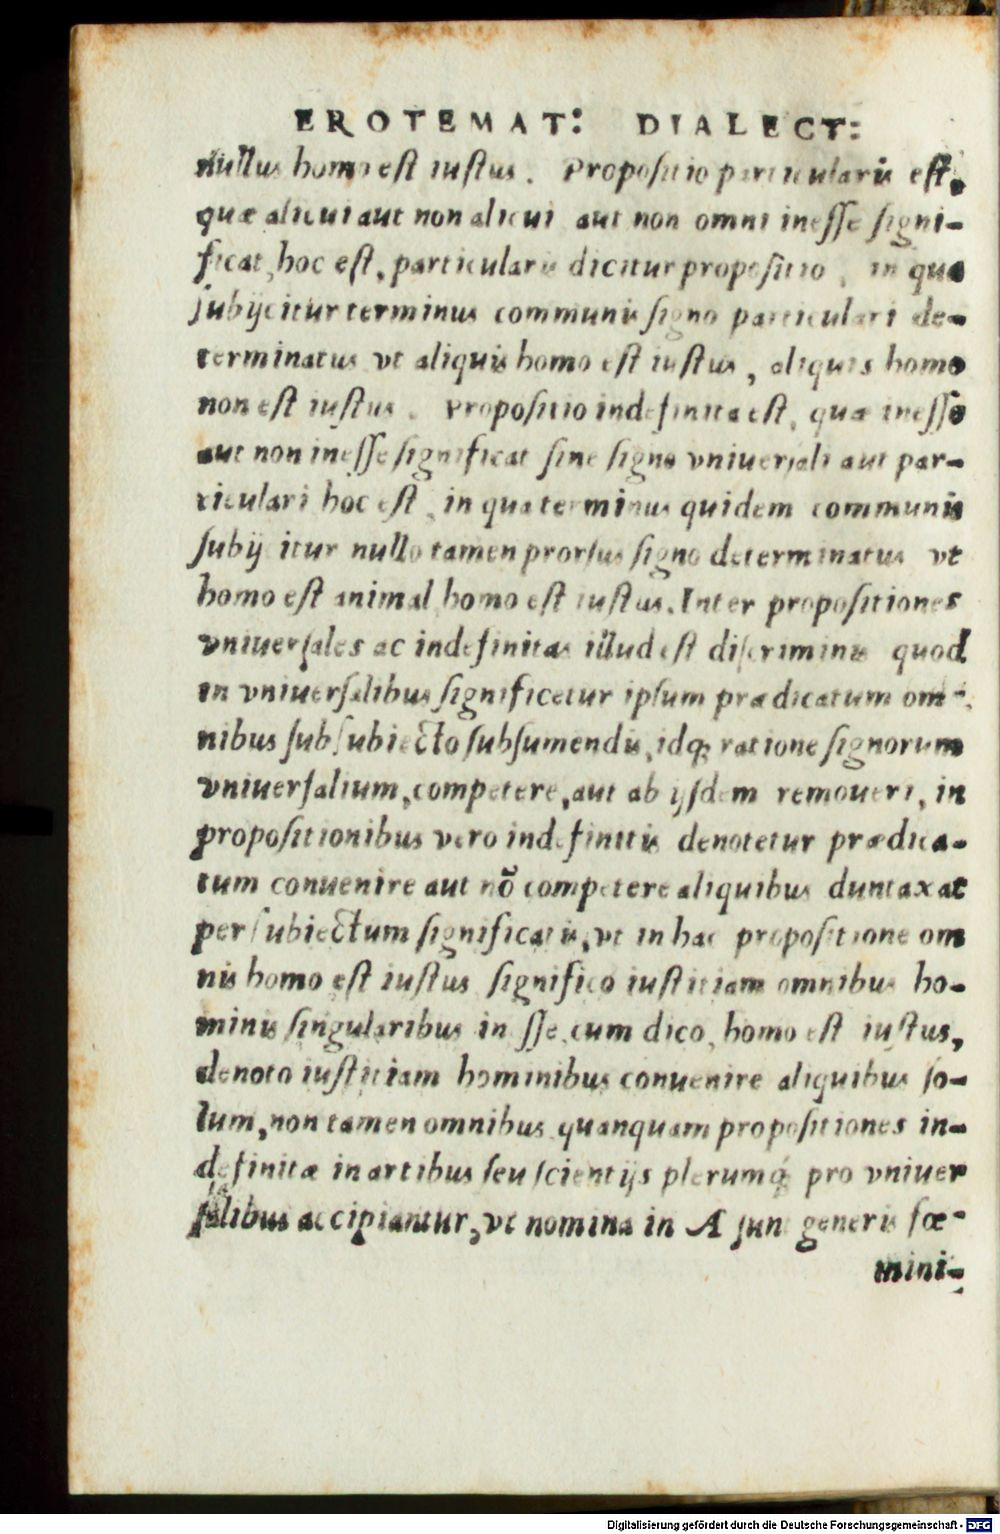 EROTEMAT: DIALECT:
nullus homo est iustus. Propositio particularis est,
quæ alicui aut non alicui aut non omni inesse signi-
ficat, hoc est, particularis dicitur propositio, in qua
subijcitur terminus communis signo particulari de-
terminatus vt aliquis homo est iustus, aliquis homo
non est iustus. Propositio indefinita est, quæ inesse
aut non inesse significat sine signo vniuersali aut par-
ticulari hoc est, in qua terminus quidem communis
subijcitur nullo tamen prorsus signo determinatus vt
homo est animal homo est iustus. Inter propositiones
vniuersales ac indefinitas illud est discriminis quod
in vniuersalibus significetur ipsum prædicatum om-
nibus sub subiecto subsumendis, idq; ratione signorum
vniuersalium, competere, aut ab ijsdem remoueri, in
propositionibus vero indefinitis denotetur prædica-
tum conuenire aut nõ competere aliquibus duntaxat
per subiectum significatis, vt in hac propositione om
nis homo est iustus significo iustitiam omnibus ho-
minis singularibus inesse, cum dico, homo est iustus,
denoto iustitiam hominibus conuenire aliquibus so-
lum, non tamen omnibus quanquam propositiones in-
definitæ in artibus seu scientijs plerumq; pro vniuer
salibus accipiantur, vt nomina in A sunt generis fœ-
mini-
Digitalisierung gefördert durch die Deutsche Forschungsgemeinschaft - DFG